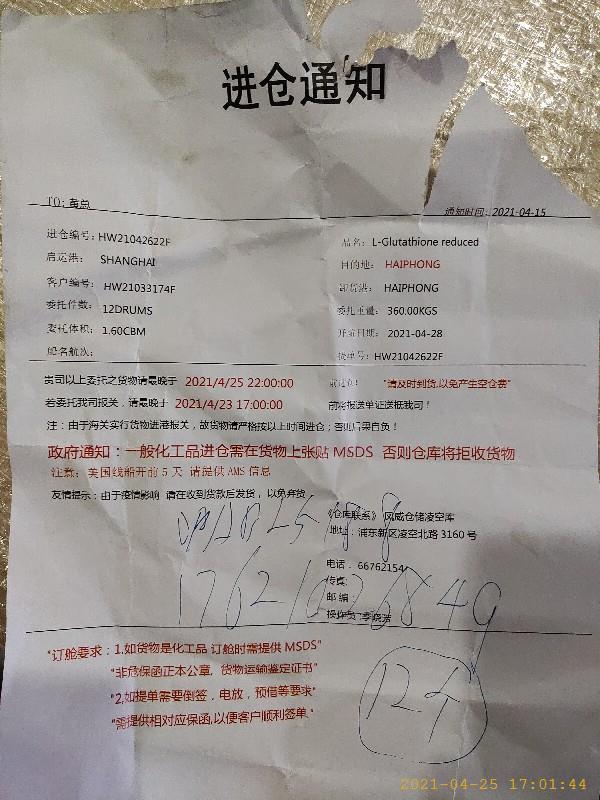 进仓通知
TO: 黄总
通知时间: 2021-04-15
进仓编号: HW21042622F
品名: L-Glutathione reduced
启运港: SHANGHAI
目的地: HAIPHONG
客户编号: HW21033174F
卸货港: HAIPHONG
委托件数: 12DRUMS
委托重量: 360.00KGS
委托体积: 1.60CBM
开航日期: 2021-04-28
船名航次:
提单号: HW21042622F
贵司以上委托之货物请最晚于 2021/4/25 22:00:00 前进仓! "请及时到货,以免产生空仓费"
若委托我司报关，请最晚于 2021/4/23 17:00:00 前将报送单证送抵我司！
注：由于海关实行货物进港报关，故货物请严格按以上时间进仓；否则后果自负！
政府通知：一般化工品进仓需在货物上张贴 MSDS 否则仓库将拒收货物
注意：美国线船开前 5 天 请提供 AMS 信息
友情提示：由于疫情影响 请在收到货款后发货，以免弃货
《仓库联系》 风威仓储凌空库
地址：浦东新区凌空北路 3160 号
电话：66762154
传真:
邮编:
操作员:李晓洁
"订舱要求：1.如货物是化工品 订舱时需提供 MSDS"
"非危保函正本公章，货物运输鉴定证书"
"2,如提单需要倒签，电放，预借等要求"
"需提供相对应保函,以便客户顺利签单."
12个
2021-04-25 17:01:44